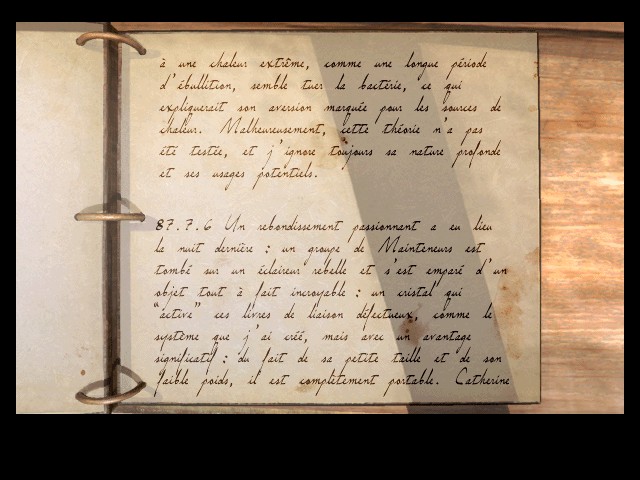 à une chaleur extrême, comme une longue période
d'ébullition, semble tuer la bactérie, ce qui
expliquerait son aversion marquée pour les sources de
chaleur. Malheureusement, cette théorie n'a pas
été testée, et j'ignore toujours sa nature profonde
et ses usages potentiels.
87.7.6 Un rebondissement passionnant a eu lieu
la nuit dernière : un groupe de Mainteneurs est
tombé sur un éclaireur rebelle et s'est emparé d'un
objet tout à fait incroyable : un cristal qui
"active" ces livres de liaison défectueux, comme le
système que j'ai créé, mais avec un avantage
significatif : du fait de sa petite taille et de son
faible poids, il est complètement portable. Catherine